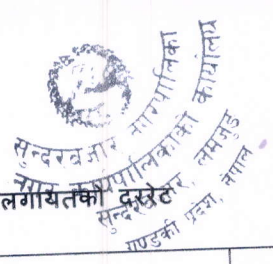 सुन्दरबजार नगरपालिका
नगर कार्यपालिकाको कार्यालय
सुन्दरबजार, लमजुङ
गण्डकी प्रदेश, नेपाल
लगायतको दररेट